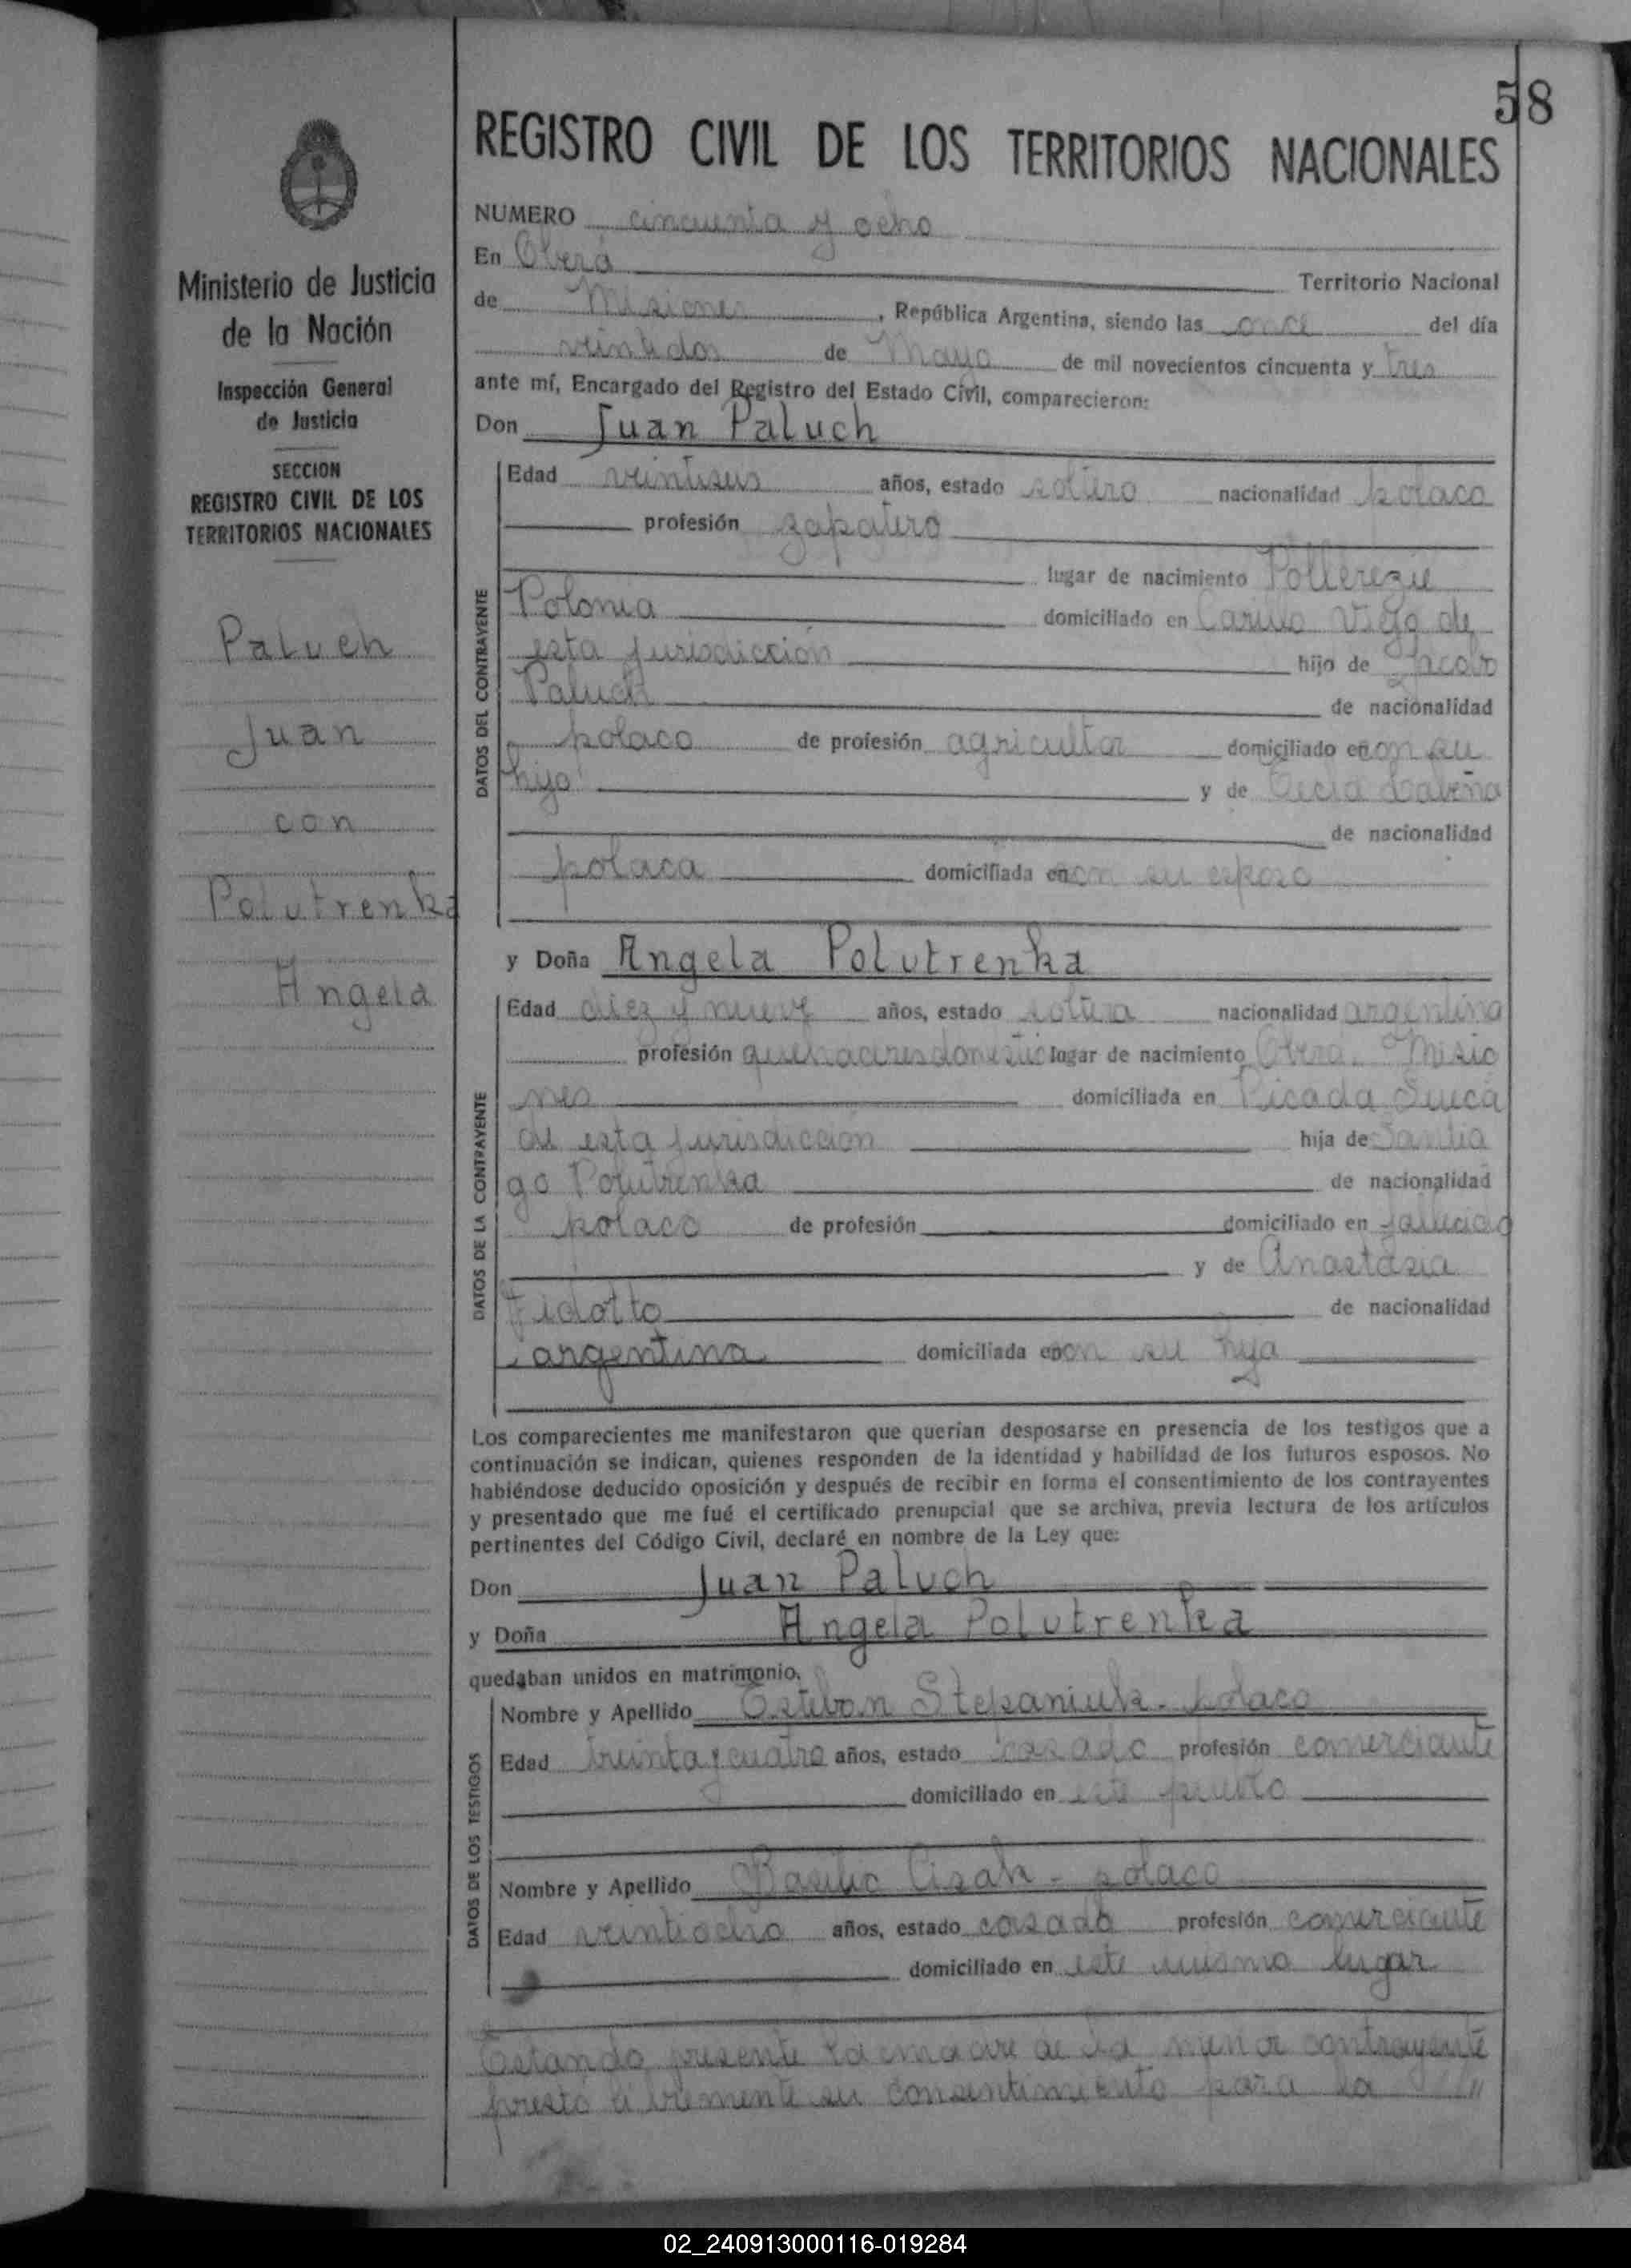 58
REGISTRO CIVIL DE LOS TERRITORIOS NACIONALES
Ministerio de Justicia
de la Nación
Inspección General
de Justicia
SECCION
REGISTRO CIVIL DE LOS
TERRITORIOS NACIONALES
Paluch
Juan
con
Polutrenka
Angela
NUMERO cincuenta y ocho
En Oberá Territorio Nacional
de Misiones, República Argentina, siendo las once del día
veintidos de Mayo de mil novecientos cincuenta y tres
ante mí, Encargado del Registro del Estado Civil, comparecieron:
Don Juan Paluch
DATOS DEL CONTRAYENTE
Edad veintiseis años, estado soltero nacionalidad polaco
profesión zapatero
lugar de nacimiento
Polonia domiciliado en Viejo de
esta jurisdicción hijo de Jacobo
Paluch de nacionalidad
polaco de profesión agricultor domiciliado en con su
hijo y de
de nacionalidad
polaca domiciliada en con su esposo
y Doña Angela Polutrenka
DATOS DE LA CONTRAYENTE
Edad diez y nueve años, estado soltera nacionalidad argentina
profesión quehaceres domestic lugar de nacimiento Obera. Misio
nes domiciliada en Picada Sueca
de esta jurisdiccion hija de Santia
go Polutrenka de nacionalidad
polaco de profesión domiciliado en fallecido
y de Anastasia
Fidotto de nacionalidad
argentina domiciliada en con su hija
Los comparecientes me manifestaron que querían desposarse en presencia de los testigos que a
continuación se indican, quienes responden de la identidad y habilidad de los futuros esposos. No
habiéndose deducido oposición y después de recibir en forma el consentimiento de los contrayentes
y presentado que me fué el certificado prenupcial que se archiva, previa lectura de los artículos
pertinentes del Código Civil, declaré en nombre de la Ley que:
Don Juan Paluch
y Doña Angela Polutrenka
quedaban unidos en matrimonio.
DATOS DE LOS TESTIGOS
Nombre y Apellido Esteban Stepaniuk - polaco
Edad treinta y cuatro años, estado casado profesión comerciante
domiciliado en este pueblo
Nombre y Apellido Basilio Cisak - polaco
Edad veintiocho años, estado casado profesión comerciante
domiciliado en este mismo lugar
Estando presente la madre de la menor contrayente
prestó libremente su consentimiento para la ///
02_240913000116-019284